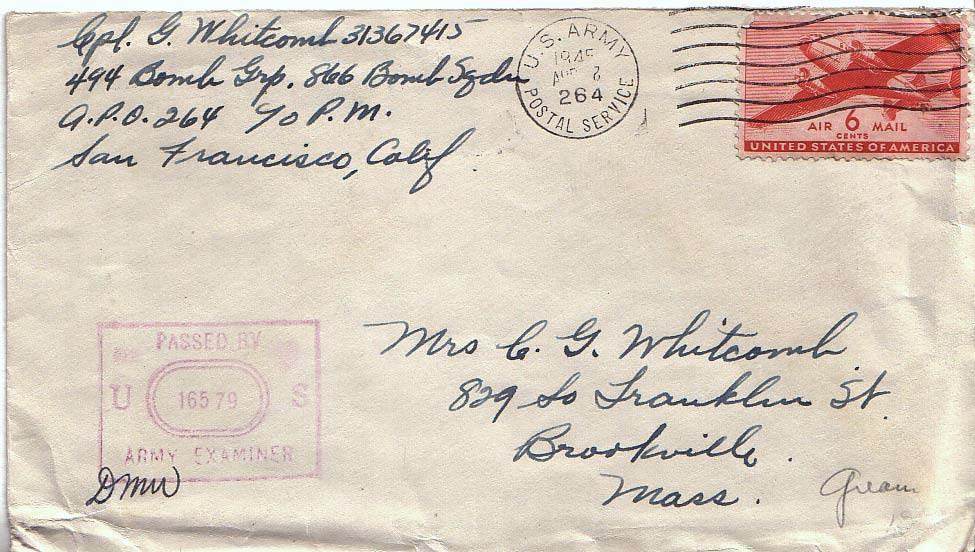 Cpl. G. Whitcomb 31367415
494 Bomb Grp. 866 Bomb Sqdn
A.P.O. 264 % P.M.
San Francisco, Calif
U.S. ARMY
1945
264
POSTAL SERVICE
AIR 6 MAIL
CENTS
UNITED STATES OF AMERICA
PASSED BY
U 16579 S
ARMY EXAMINER
DMW
Mrs C. G. Whitcomb
829 So Franklin St.
Brookville.
Mass.